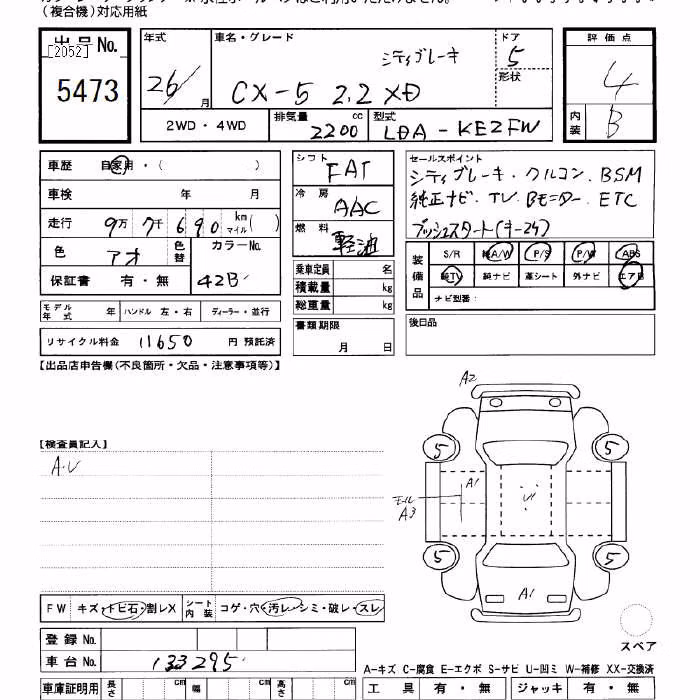 （複合機）対応用紙
出品No. [2052] 5473
年式 26/ 月
車名・グレード シティブレーキ
CX-5 2.2 XD
ドア 5
形状
2WD・4WD
排気量 2200 cc
型式 LDA-KE2FW
評価点 4
内装 B
車歴 自家用・（ ）
車検 年 月
走行 9万 7千 690 km マイル（ ）
色 アオ 色替 カラーNo. 42B
保証書 有・無
シフト FAT
冷房 AAC
燃料 軽油
乗車定員 名
積載量 kg
総重量 kg
書類期限 月 日
セールスポイント
シティブレーキ・クルコン．BSM
純正ナビ．TV．Bモニター．ETC
プッシュスタート(キー2ケ)
装備品 S/R 純A/W P/S P/W ABS
純TV 純ナビ 革シート 外ナビ エアB
ナビ型番：
後日品
モデル年式 年 ハンドル 左・右 ディーラー・並行
リサイクル料金 11650 円 預託済
【出品店申告欄(不良箇所・欠品・注意事項等)】
【検査員記入】
A.U
A2
5 5
A1
モール A3
5 5
A1
スペア
FW キズ・トビ石・割レX シート内装 コゲ・穴・汚レ・シミ・破レ・スレ
登録No.
車台No. 133295
A-キズ C-腐食 E-エクボ S-サビ U-凹ミ W-補修 XX-交換済
車庫証明用 長さ cm 幅 cm 高さ cm
工具 有・無 ジャッキ 有・無